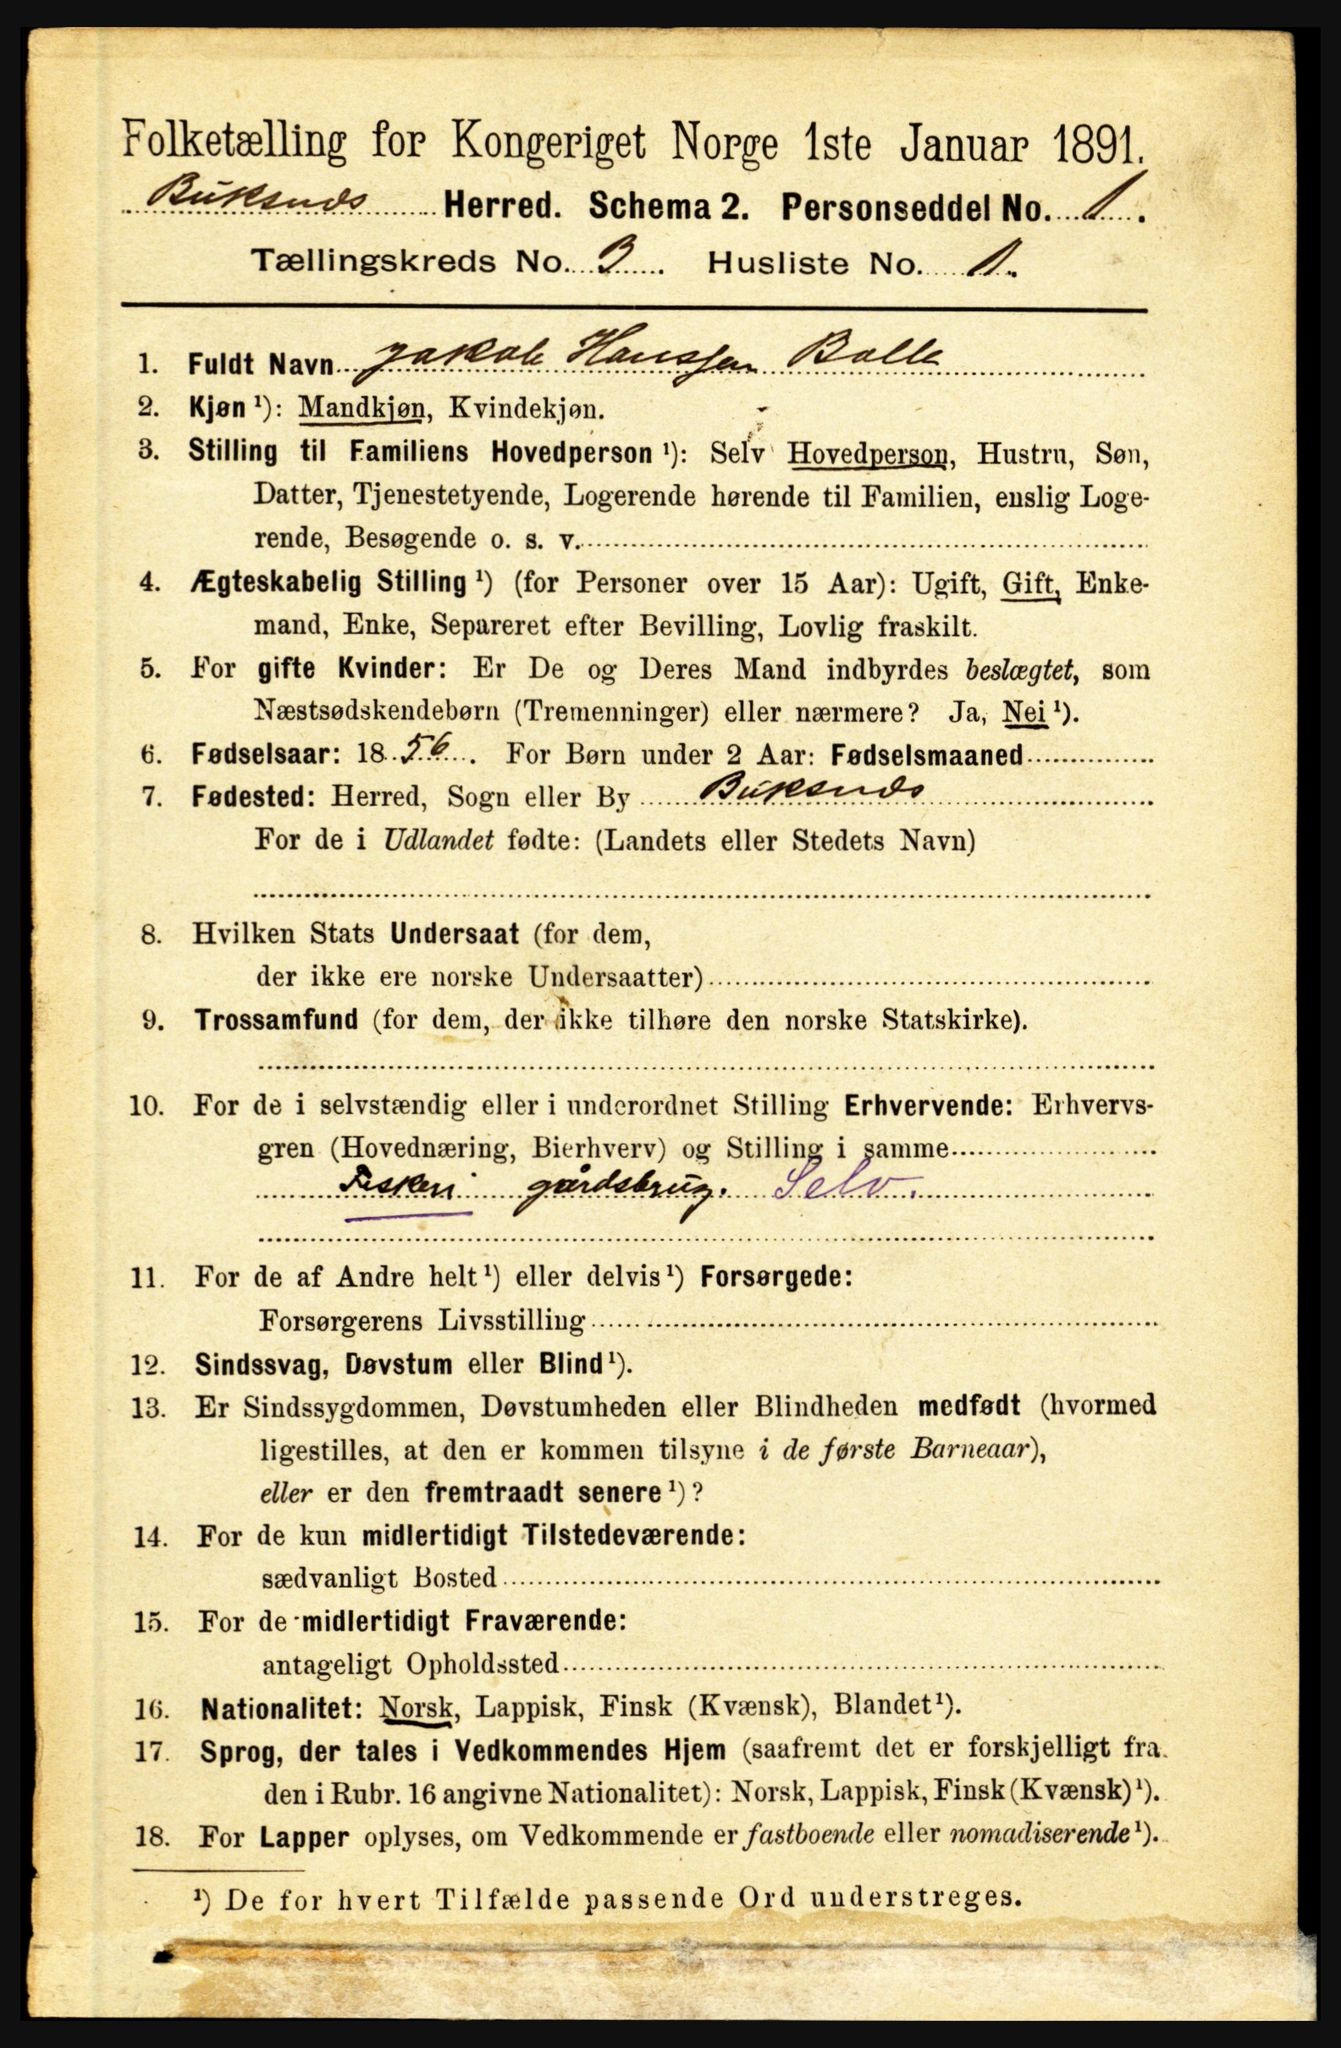 Folketælling for Kongeriget Norge 1ste Januar 1891.
Buksnds Herred. Schema 2. Personseddel No. 1.
Tællingskreds No. 3. Husliste No. 1.
1. Fuldt Navn Jakob Hanssen Balle
2. Kjøn ¹): Mandkjøn, Kvindekjøn.
3. Stilling til Familiens Hovedperson ¹): Selv Hovedperson, Hustru, Søn,
Datter, Tjenestetyende, Logerende hørende til Familien, enslig Loge-
rende, Besøgende o. s. v.
4. Ægteskabelig Stilling ¹) (for Personer over 15 Aar): Ugift, Gift, Enke-
mand, Enke, Separeret efter Bevilling, Lovlig fraskilt.
5. For gifte Kvinder: Er De og Deres Mand indbyrdes beslægtet, som
Næstsødskendebørn (Tremenninger) eller nærmere? Ja, Nei ¹).
6. Fødselsaar: 1856. For Børn under 2 Aar: Fødselsmaaned
7. Fødested: Herred, Sogn eller By Buksnds
For de i Udlandet fødte: (Landets eller Stedets Navn)
8. Hvilken Stats Undersaat (for dem,
der ikke ere norske Undersaatter)
9. Trossamfund (for dem, der ikke tilhøre den norske Statskirke).
10. For de i selvstændig eller i underordnet Stilling Erhvervende: Erhvervs-
gren (Hovednæring, Bierhverv) og Stilling i samme
Fiskeri gårdsbrug. Selv.
11. For de af Andre helt ¹) eller delvis ¹) Forsørgede:
Forsørgerens Livsstilling
12. Sindssvag, Døvstum eller Blind ¹).
13. Er Sindssygdommen, Døvstumheden eller Blindheden medfødt (hvormed
ligestilles, at den er kommen tilsyne i de første Barneaar),
eller er den fremtraadt senere ¹)?
14. For de kun midlertidigt Tilstedeværende:
sædvanligt Bosted
15. For de midlertidigt Fraværende:
antageligt Opholdssted
16. Nationalitet: Norsk, Lappisk, Finsk (Kvænsk), Blandet ¹).
17. Sprog, der tales i Vedkommendes Hjem (saafremt det er forskjelligt fra
den i Rubr. 16 angivne Nationalitet): Norsk, Lappisk, Finsk (Kvænsk) ¹).
18. For Lapper oplyses, om Vedkommende er fastboende eller nomadiserende ¹).
¹) De for hvert Tilfælde passende Ord understreges.